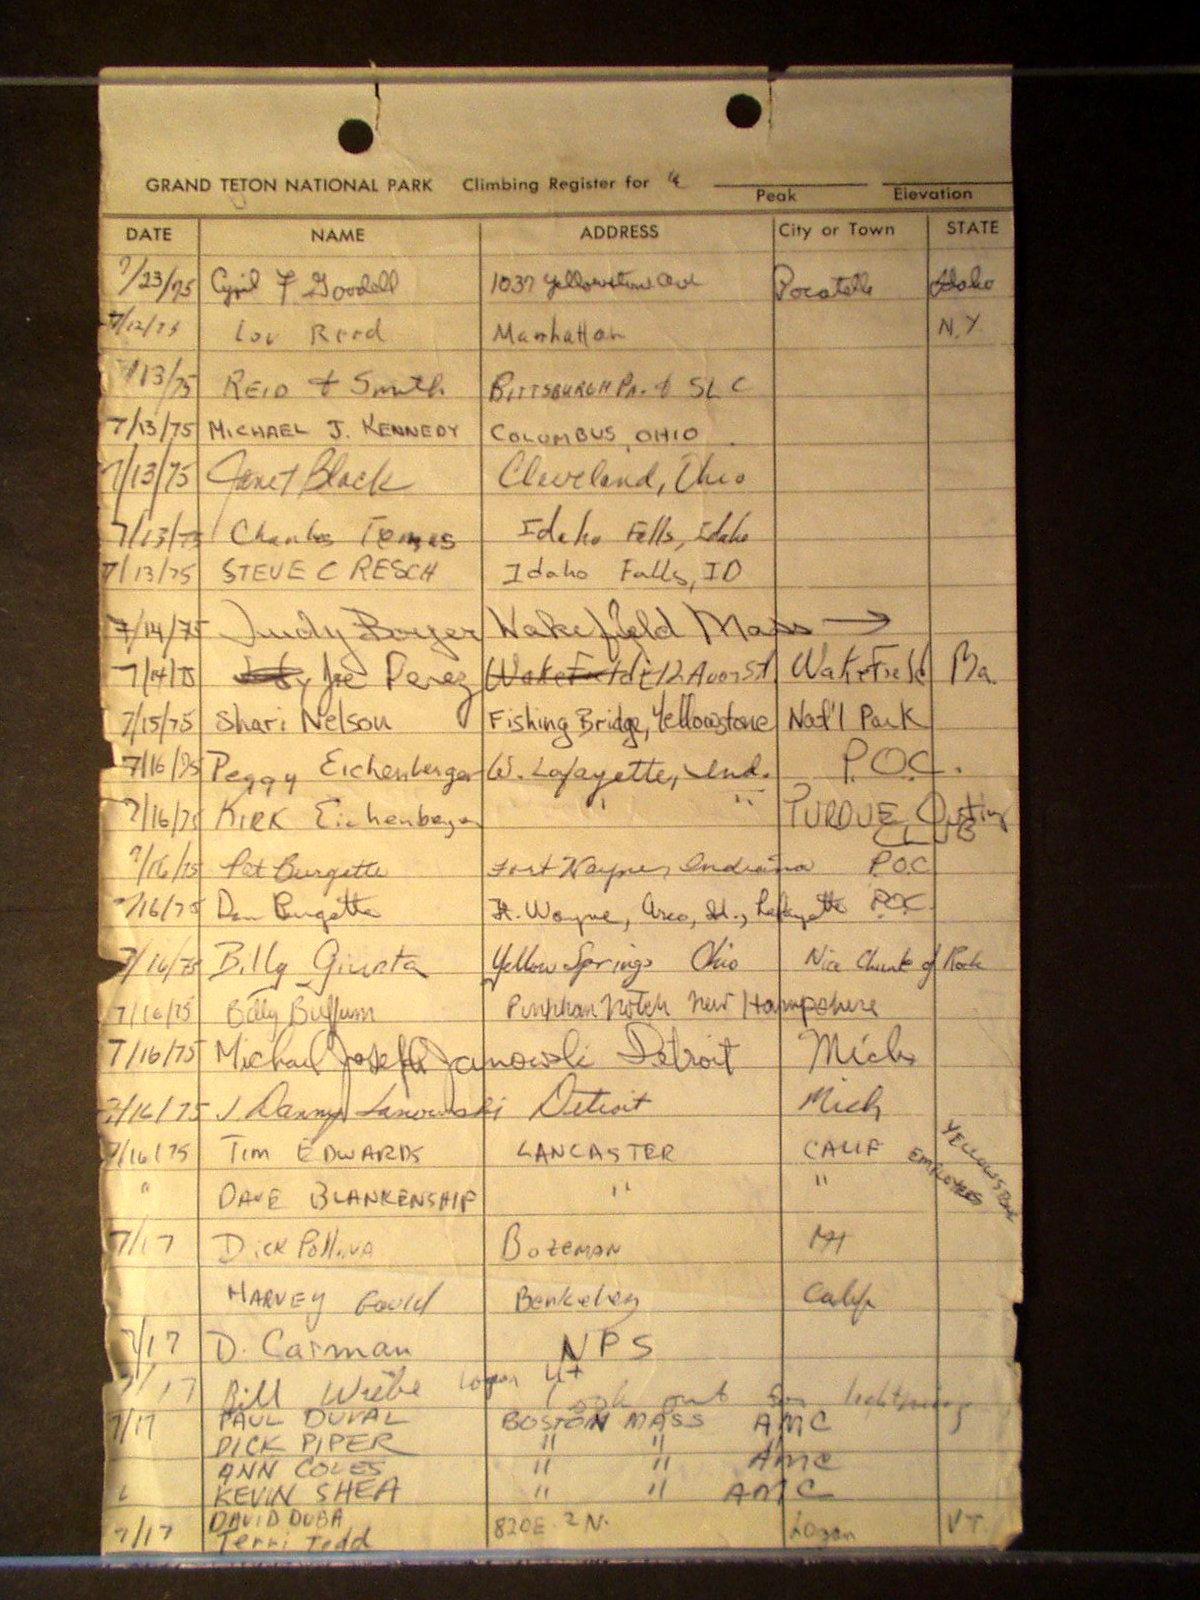 GRAND TETON NATIONAL PARK Climbing Register for
Peak Elevation
DATE NAME ADDRESS City or Town STATE
7/23/75 Cyril F Goodell 1037 Yellowstone Ave Pocatello Idaho
7/12/75 Lou Reed Manhattan N.Y.
7/13/75 REID & Smith PITTSBURGH PA. & SLC
7/13/75 MICHAEL J. KENNEDY COLUMBUS, OHIO
7/13/75 Janet Black Cleveland, Ohio
7/13/75 Charles Idaho Falls, Idaho
7/13/75 STEVE C RESCH Idaho Falls, ID
7/14/75 Judy Boyer Wakefield Mass →
7/14/75 Joe Perez 12 Avon St WakeField Ma.
7/15/75 Shari Nelson Fishing Bridge, Yellowstone Nat'l Park
7/16/75 Peggy Eichenberger W. Lafayette, Ind. P.O.C.
7/16/75 KIRK Eichenberger " " PURDUE Outing CLUB
7/16/75 Pat Burgette Fort Wayne, Indiana P.O.C.
7/16/75 Dan Burgette Ft. Wayne, Lafayette P.O.C.
7/16/75 Billy Giunta Yellow Springs Ohio Nice Chunk of Rock
7/16/75 Billy Buffum Pinkham Notch New Hampshire
7/16/75 Michael Joseph Janowski Detroit Mich
7/16/75 J Danny Janowski Detroit Mich
7/16/75 Tim EDWARDS LANCASTER CALIF YELLOWSTONE EMPLOYEES
" DAVE BLANKENSHIP " "
7/17 Dick Bozeman MT
HARVEY Gould Berkeley Calif
7/17 D. Carman NPS
7/17 Bill Wiebe Logan Ut Look out for lightning
7/17 PAUL DUVAL BOSTON MASS AMC
DICK PIPER " "
ANN COLES " " AMC
KEVIN SHEA " " AMC
DAVID DUBA 820E. 2N. Logan UT.
7/17 Terri Todd